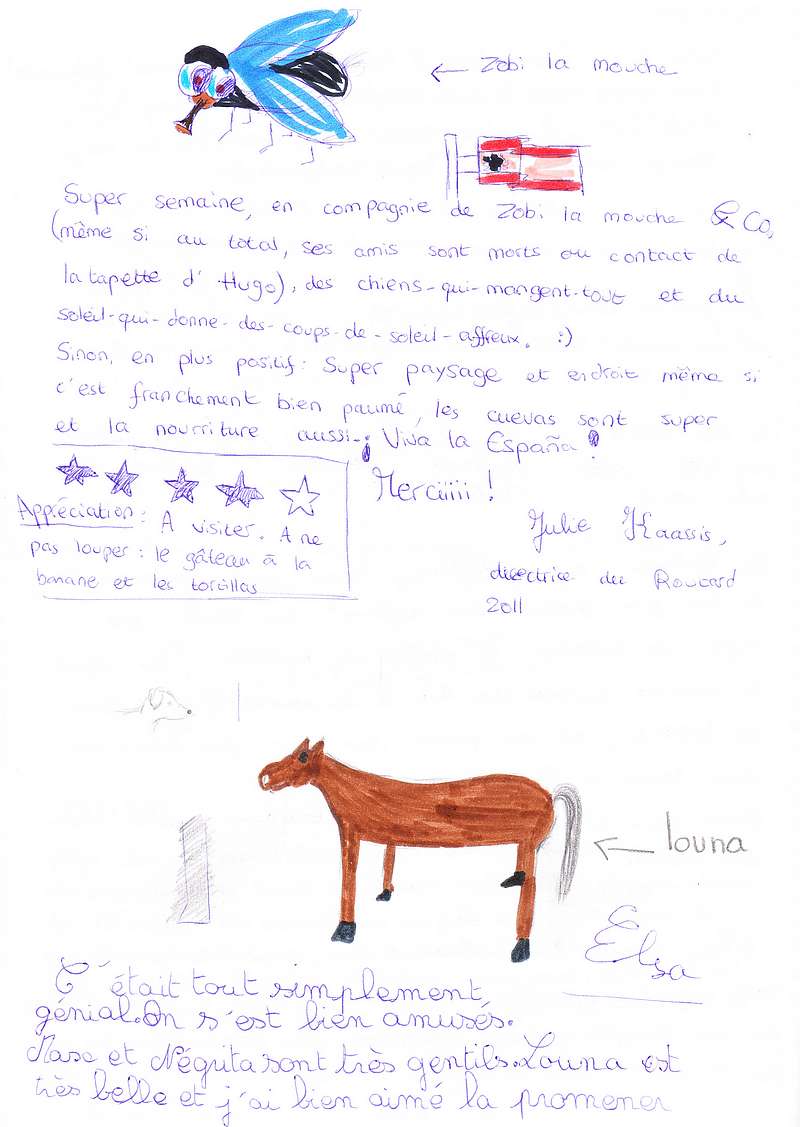 ← Zobi la mouche
Super semaine, en compagnie de Zobi la mouche & Co,
(même si au total, ses amis sont morts au contact de
la tapette d'Hugo), des chiens-qui-mangent-tout et du
soleil-qui-donne-des-coups-de-soleil-affreux. :)
Sinon, en plus positif: Super paysage et endroit même si
c'est franchement bien paumé, les cuevas sont super
et la nourriture aussi. ¡Viva la España!
Merciiiii !
Appréciation : A visiter. A ne
pas louper : le gâteau à la
banane et les tortillas
Julie Kaassis,
directrice du
2011
← louna
Elsa
C'était tout simplement
génial. On s'est bien amusés.
et Néguita sont très gentils. Louna est
très belle et j'ai bien aimé la promener